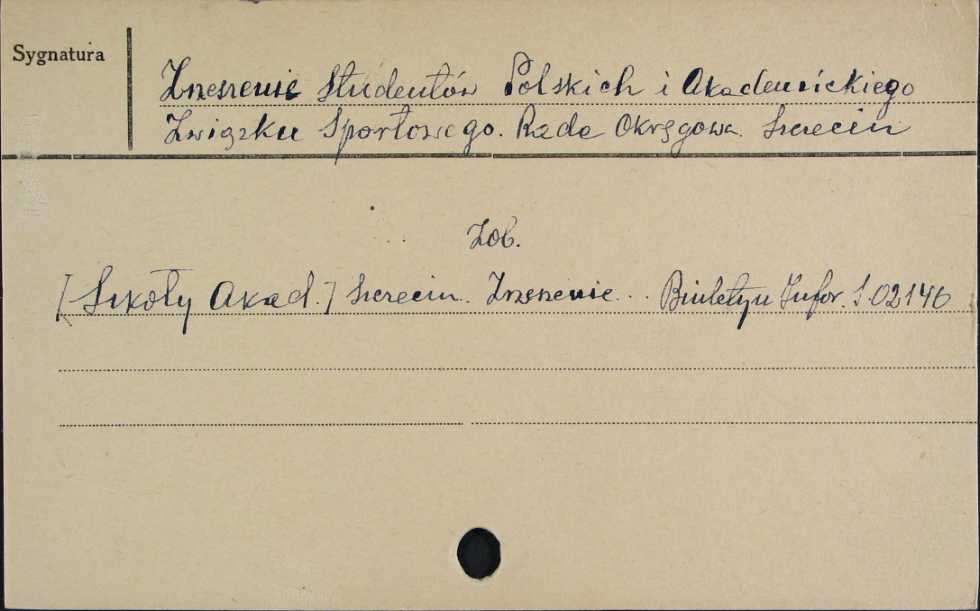 Sygnatura
Zrzeszenie Studentów Polskich i Akademickiego
Związku Sportowego. Rada Okręgowa. Szczecin
Zob.
[Szkoły Akad.] Szczecin. Zrzeszenie... Biuletyn Infor. S.02146